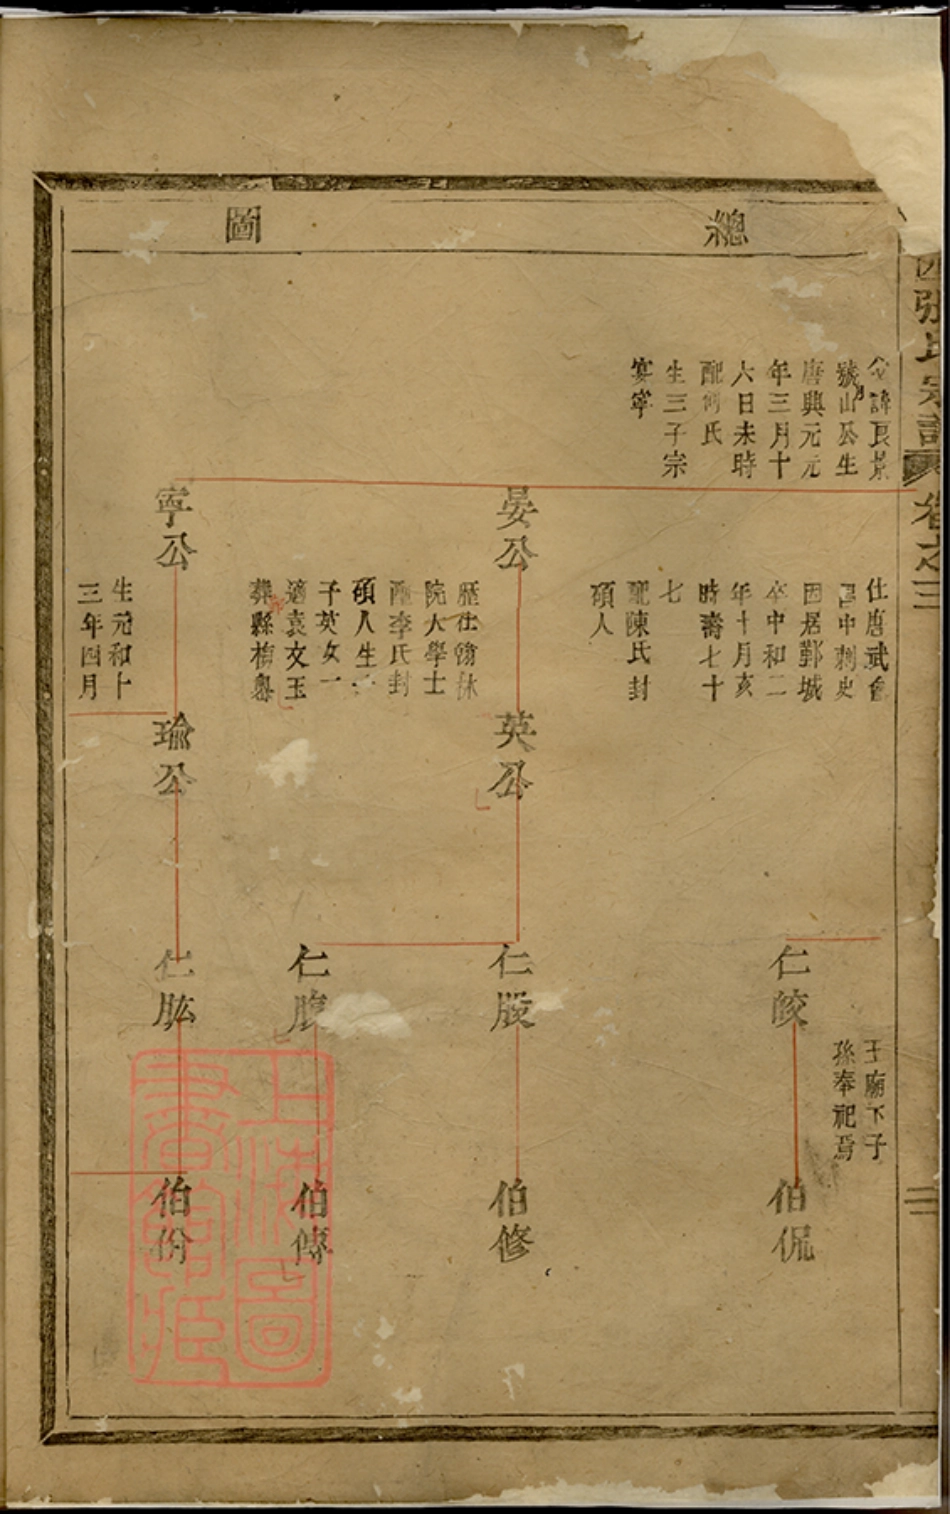 張氏宗譜
卷之三
二
總
圖
公諱良景
號山公生
唐興元元
年三月十
六日未時
配何氏
生三子宗
宴寧
晏公
寧公
仕唐武會
中刺史
因居鄞城
卒中和二
年十月亥
時壽七十
七
配陳氏封
碩人
歷仕翰林
院大學士
配李氏封
碩人生
子英女一
適袁文玉
葬縣
生元和十
三年四月
英公
瑜公
仁皎
仁股
仁腹
仁肱
王廟下子
孫奉祀焉
伯侃
伯修
伯傳
伯份
上海圖
書館藏